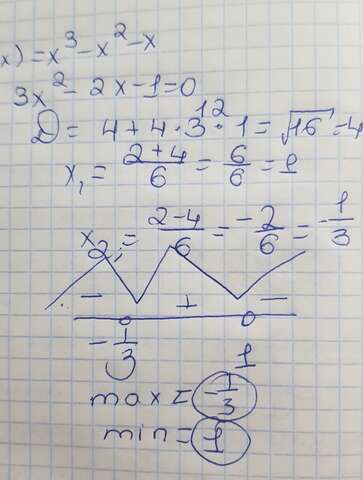 x) = x³ - x² - x
3x² - 2x - 1 = 0
D = 4 + 4 · 3 · 1 = √16 = 4
12
x₁ = (2+4)/6 = 6/6 = 1
x₂ = (2-4)/6 = -2/6 = -1/3
- + -
-1/3 1
max = -1/3
min = 1